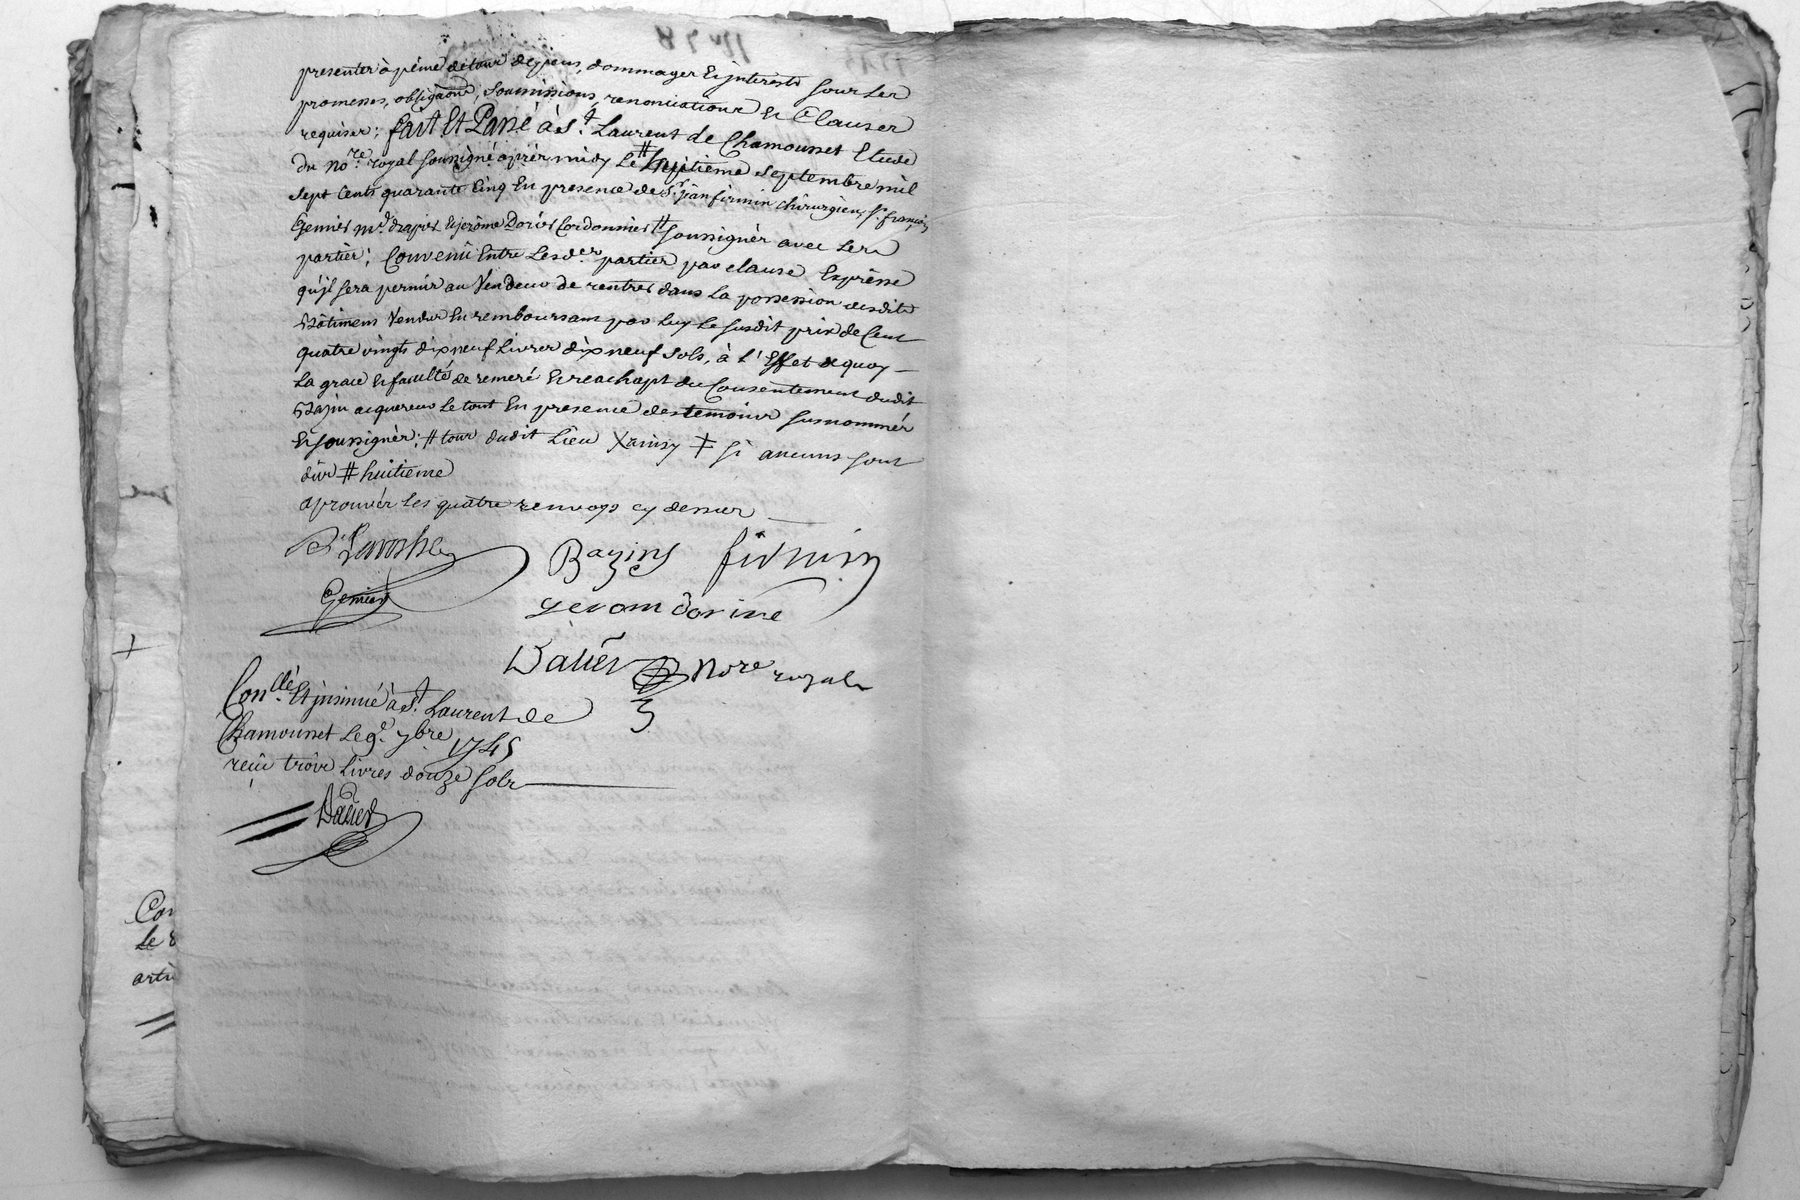 presenter à péine de tous depens, dommages et jnterests sous les
promesses, obliga͠ons, soumissions, renonciations et Clauses
requises; fait Et Passé à St. Laurent de Chamousset Etude
du nore. royal soussigné aprés midy le # huitième septembre mil
sept Cents quarante Cinq En presence de Sr. jean firmin chirurgien, Sr. françois
Genies md. drapier Et jerôme Dories Cordonnier # soussignés avec les
parties; Convenû Entre Lesdes. parties par clause Expresse
qu'jl sera permis au Vendeur de rentrer dans la possession desdits
Bâtimens Vendus En remboursant par luy Le susdit prix de Cent
quatre vingts dix neuf Livres dix neuf sols, à l'Effet de quoy
La grace et faculté de remeré Et reachapt du Consentement dudit
Bazin acquereur le tout En presence des temoins susnommés
Et soussignés; # tous dudit Lieu ǂ si aucuns sont
dûs # huitieme
aprouvés les quatre renvoys cy dessus
Laroche
Bazins firmin
Genies
gerom dorine
Dalies Nore royal
Conllé. Et jnsinué à St. Laurent de
Chamousset le 9e. 7bre 1745
reçû trois Livres douze sols
Dalies
Con
Le
arti